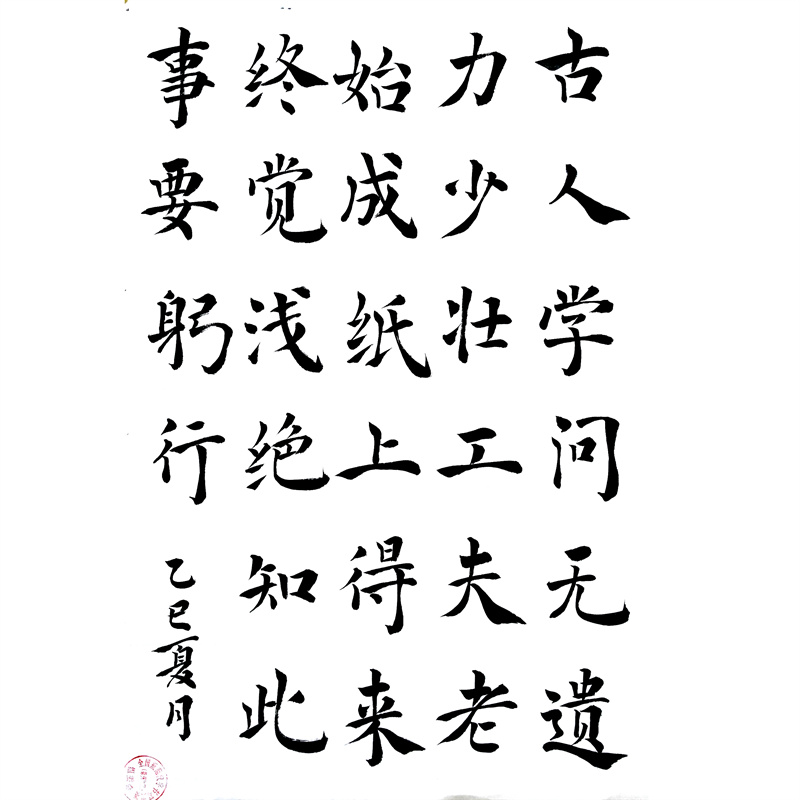 古人学问无遗
力少壮工夫老
始成纸上得来
终觉浅绝知此
事要躬行
乙巳夏月